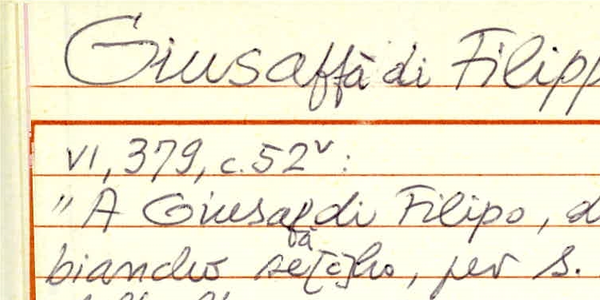 Giusaffà di Filipp
VI, 379, c. 52v:
"A Giusaffà di Filipo, d
biancho se[c]ho, per s.